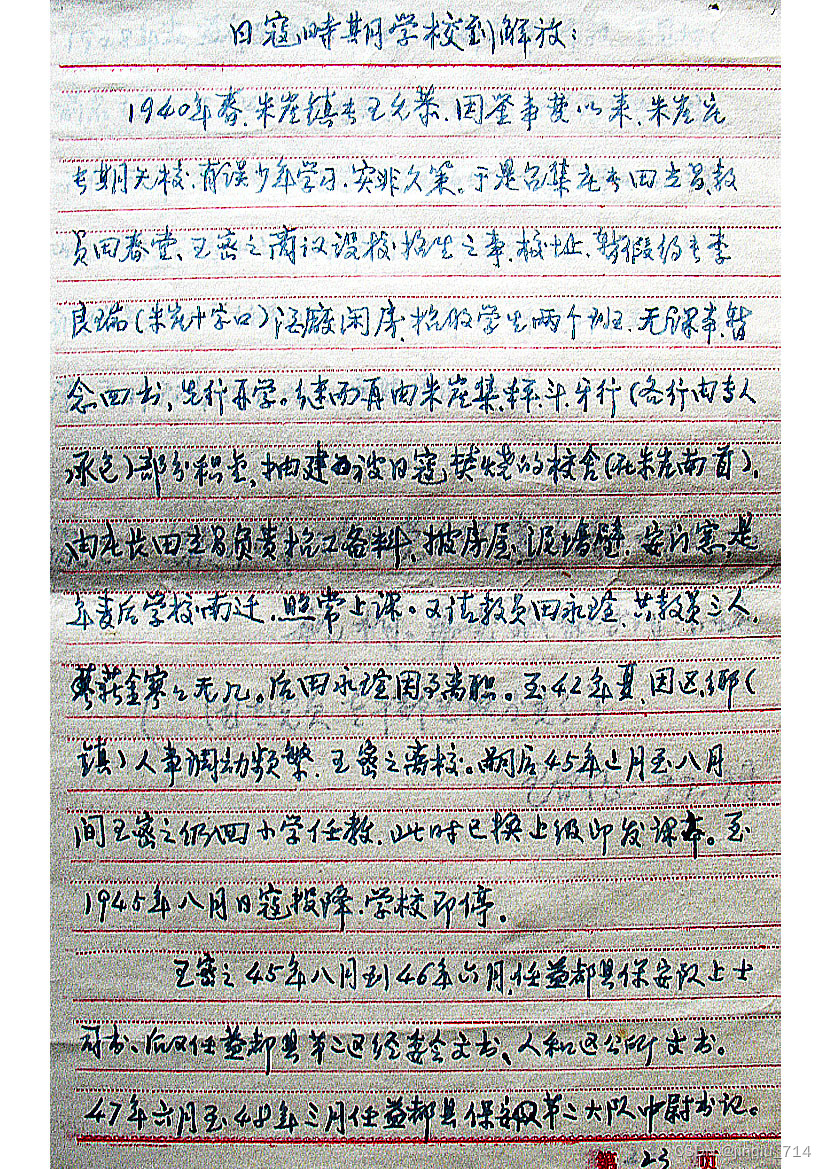 日寇时期学校到解放:
1940年春、朱崖镇长王允恭、因鉴事变以来、朱崖庄
长期无校、有误少年学习、实非久策。于是召集庄长田立昌、教
员田春堂、王密之商议设校招生之事、校址、暂假约长李
良瑞(朱崖十字口)注廢闲房、招收学生两个班、无课本、暂
念四书、先行开学。继而再由朱崖集、秤、斗、牙行(各行由专人
承包)部分积金、抽建因被日寇焚烧的校舍(在朱崖南首)、
由庄长田立昌负责招工备料、披房屋、泥墙壁、安门窗、是
年麦后学校南迁、照常上课。又请教员田永瑄、共教员三人、
薪金寥寥无几。后田永瑄因事离职。至42年夏、因区乡(
镇)人事调动频繁、王密之离校。嗣后45年止月至八月
间王密之仍回小学任教、此时已换上级印发课本。至
1945年八月日寇投降、学校即停。
王密之45年八月到46年六月、任益都县保安队上士
司书、后又任益都县第二区经委会文书、人和区公所文书。
47年六月至48年三月任益都县保安队第二大队中尉书记。
第 23 页
CSDN @jinglu_714